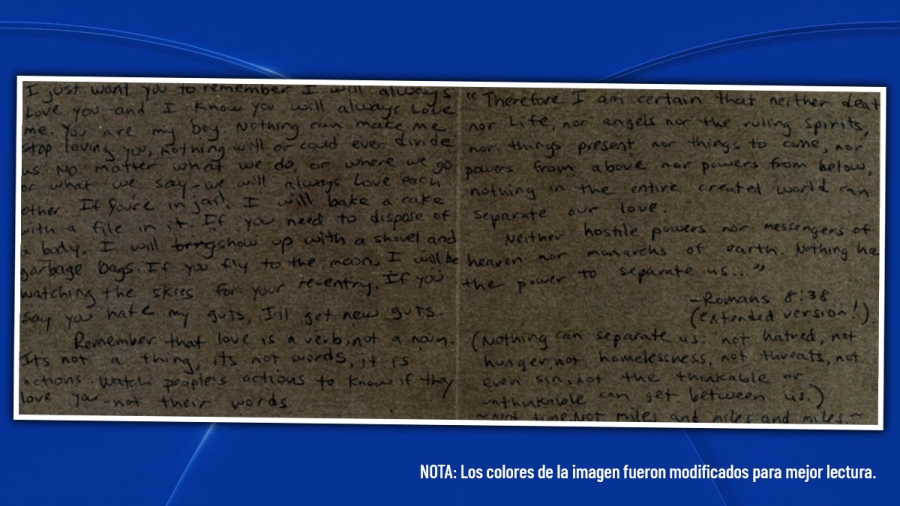 I just want you to remember I will always
Love you and I know you will always Love
me. You are my boy. Nothing can make me
stop loving you, nothing will or could ever divide
us. No matter what we do, or where we go
or what we say - we will always Love each
other. If you're in jail, I will bake a cake
with a file in it. If you need to dispose of
a body, I will show up with a shovel and
garbage bags. If you fly to the moon, I will be
watching the skies for your re-entry. If you
say you hate my guts, I'll get new guts.
Remember that love is a verb, not a noun.
Its not a thing, its not words, it is
actions. Watch people's actions to know if they
love you - not their words
"Therefore I am certain that neither deat
nor Life, nor angels nor the ruling spirits,
nor things present nor things to come, nor
powers from above nor powers from below,
nothing in the entire created world can
separate our love.
Neither hostile powers nor messengers of
heaven nor monarchs of earth. Nothing ha
the power to separate us..."
-Romans 8:38
(extended version!)
(Nothing can separate us: not hatred, not
hunger, not homelessness, not threats, not
even sin, not the thinkable or
unthinkable can get between us.)
~Not time, Not miles and miles and miles~
NOTA: Los colores de la imagen fueron modificados para mejor lectura.